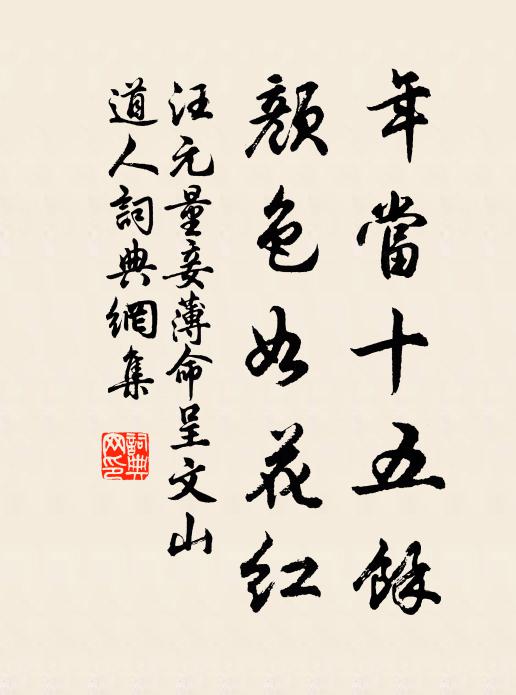 年當十五餘
顏色如花紅
汪元量妾薄命呈文山
道人詞典網集
詞典網印